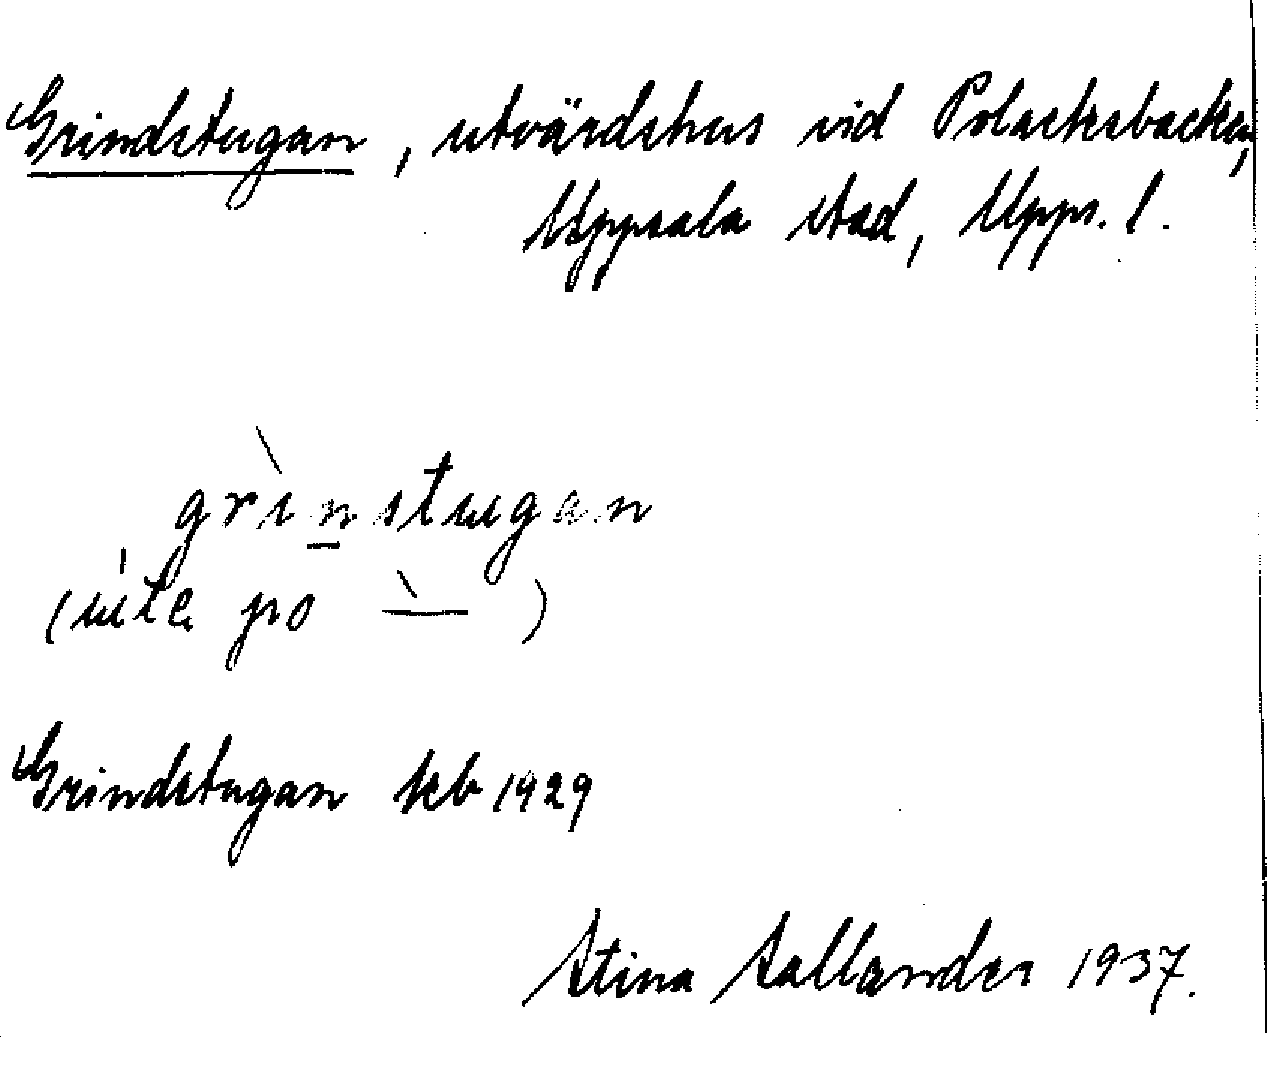 Grindstugan, utvärdshus vid Polacksbacken,
Uppsala stad, Upps. l.
grìnstugan
(úte po ˋ— )
Grindstugan tkb 1929
Stina Sallander 1937.